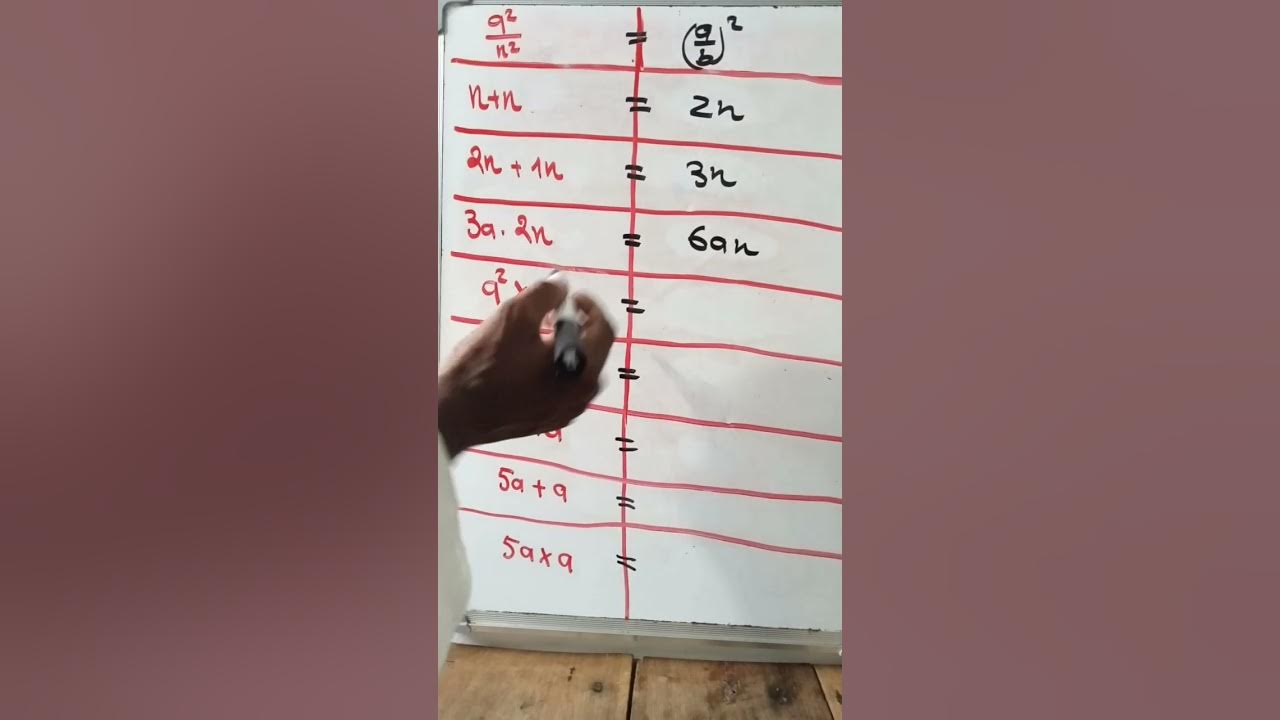 a²/n² = (a/b)²
n+n = 2n
2n + 1n = 3n
3a · 2n = 6an
a² =
=
a =
5a + a =
5a x a =